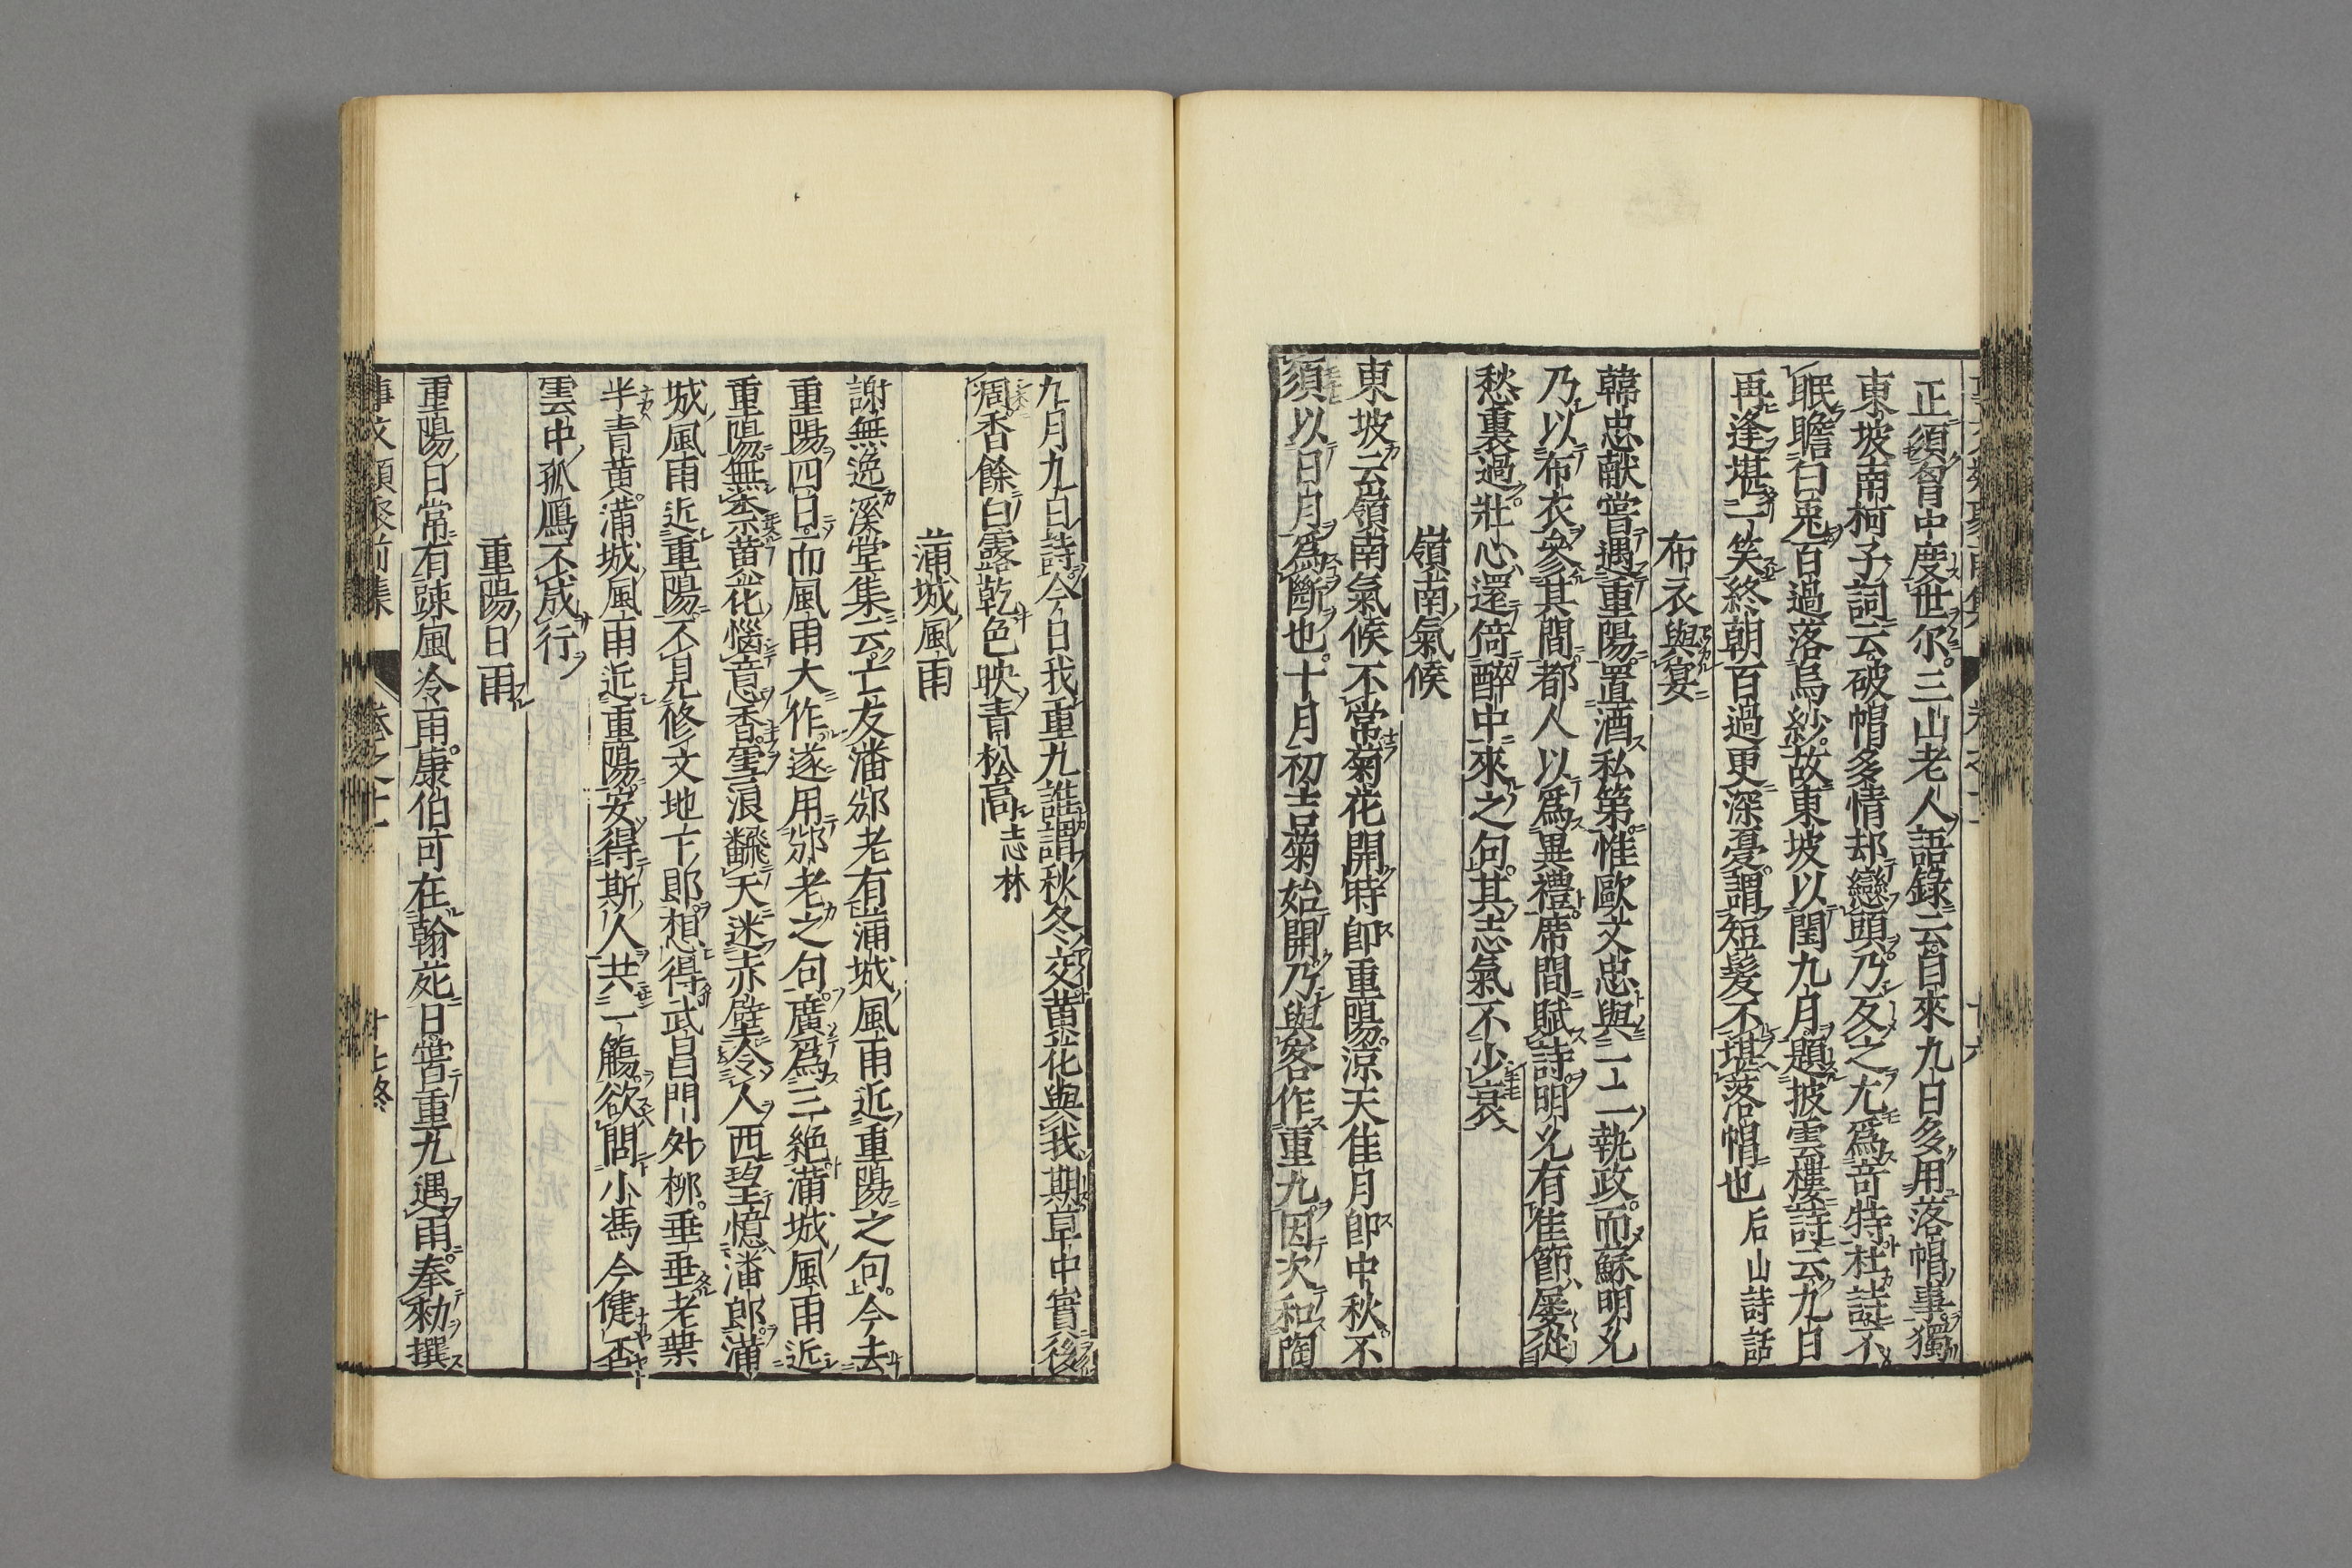 正須智中度世尔三山老人語錄云自來九日多用落帽事獨
東坡南柯子詞云破帽多情却戀頭乃反之尤為奇特杜詩不
眠瞻白兎百過落烏紗故東坡以閏九月題披雲樓詩云九日
再逢堪一笑終朝百過更深憂謂短髮不堪落帽也后山詩話
布衣與宴
韓忠献嘗遇重陽置酒私第惟歐文忠與一二執政而蘇明兊
乃以布衣參其間都人以爲異禮席間賦詩明兊有佳節屡從
愁裏過壯心還倚醉中來之句其志氣不少衰
嶺南氣候
東坡云嶺南氣候不常菊花開時即重陽凉天佳月即中秋不
須以日月爲斷也十月初吉菊始開乃與客作重九因次和陶
九月九日詩今日我重九誰謂秋冬交黄花與我期草中實後
凋香餘白露乾色映青松高志林
蒲城風雨
謝無逸溪堂集云亡友潘邠老有蒲城風雨近重陽之句今去
重陽四日而風雨大作遂用邠老之句廣爲三絶蒲城風雨近
重陽無奈黄花惱意香雪浪飜天迷赤壁令人西望憶潘郎蒲
城風雨近重陽不見修文地下郎想得武昌門外柳垂垂老葉
半青黄蒲城風雨近重陽安得斯人共一觴欲問小馮今健否
雲中孤鴈不成行
重陽日雨
重陽日常有踈風冷雨康伯可在翰苑日嘗重九遇雨奉勅撰
事文類聚前集 卷之十一 十七終